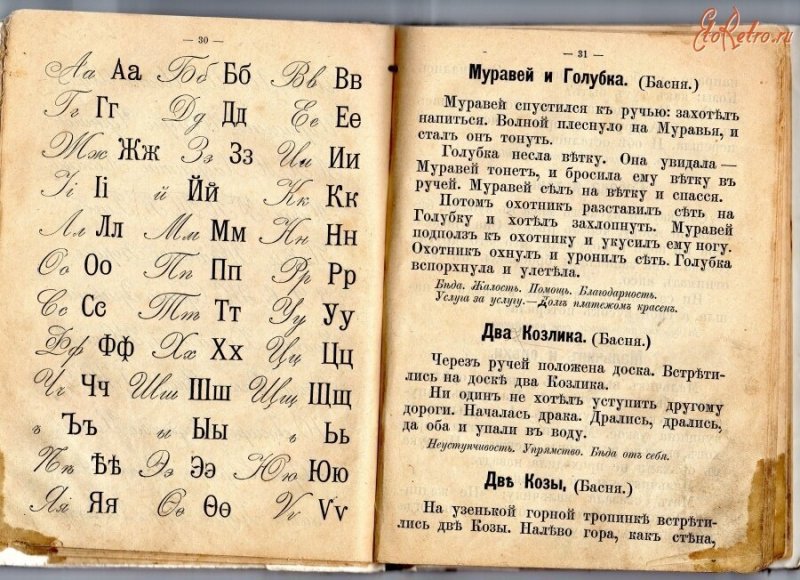 EtoRetro.ru
— 30 —
Аа Аа Бб Бб Вв Вв
Гг Гг Дд Дд Ее Ее
Жж Жж Зз Зз Ии Ии
Іі Іі й Йй Кк Кк
Лл Лл Мм Мм Нн Нн
Оо Оо Пп Пп Рр Рр
Сс Сс Тт Тт Уу Уу
Фф Фф Хх Хх Цц Цц
Чч Чч Шш Шш Щщ Щщ
ъ Ъъ ы Ыы ь Ьь
Ѣѣ Ѣѣ Ээ Ээ Юю Юю
Яя Яя Ѳѳ Ѳѳ Ѵѵ Ѵѵ
— 31 —
Муравей и Голубка. (Басня.)
Муравей спустился къ ручью: захотѣлъ
напиться. Волной плеснуло на Муравья, и
сталъ онъ тонуть.
Голубка несла вѣтку. Она увидала —
Муравей тонетъ, и бросила ему вѣтку въ
ручей. Муравей сѣлъ на вѣтку и спасся.
Потомъ охотникъ разставилъ сѣть на
Голубку и хотѣлъ захлопнуть. Муравей
подползъ къ охотнику и укусилъ ему ногу.
Охотникъ охнулъ и уронилъ сѣть. Голубка
вспорхнула и улетѣла.
Бѣда. Жалость. Помощь. Благодарность.
Услуга за услугу.—Долгъ платежомъ красенъ.
Два Козлика. (Басня.)
Черезъ ручей положена доска. Встрѣти-
лись на доскѣ два Козлика.
Ни одинъ не хотѣлъ уступить другому
дороги. Началась драка. Дрались, дрались,
да оба и упали въ воду.
Неуступчивость. Упрямство. Бѣда отъ себя.
Двѣ Козы, (Басня.)
На узенькой горной тропинкѣ встрѣти-
лись двѣ Козы. Налѣво гора, какъ стѣна,